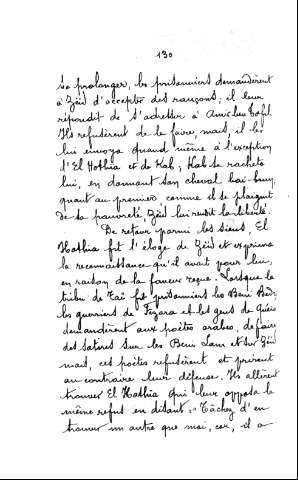 190
se prolonger, les prisonniers demandèrent
à Zéid d'accepter des rançons; il leur
répondit de s'adresser à Amir ben Tofil.
Ils refusèrent de le faire, mais il les
lui envoya quand même à l'exception
d'El Hothia et de Kab; Kab se racheta
lui, en donnant son cheval bai-brun,
quant au premier comme il se plaignit
de sa pauvreté, Zéid lui rendit la liberté.
De retour parmi les siens, El
Hathia fit l'éloge de Zéid et exprima
la reconnaissance qu'il avait pour lui,
en raison de la faveur reçue. Lorsque la
tribu de Taï fit prisonniers les Beni Bedr,
les guerriers de Fezara et les gens de Quéis
demandèrent aux poètes arabes, de faire
des satires sur les Beni Lam et sur Zéid
mais, ces poètes refusèrent et prirent
au contraire leur défense. Ils allèrent
trouver El Hathia qui leur opposa le
même refus en disant: "Tâchez d'en
trouver un autre que moi, car, il a